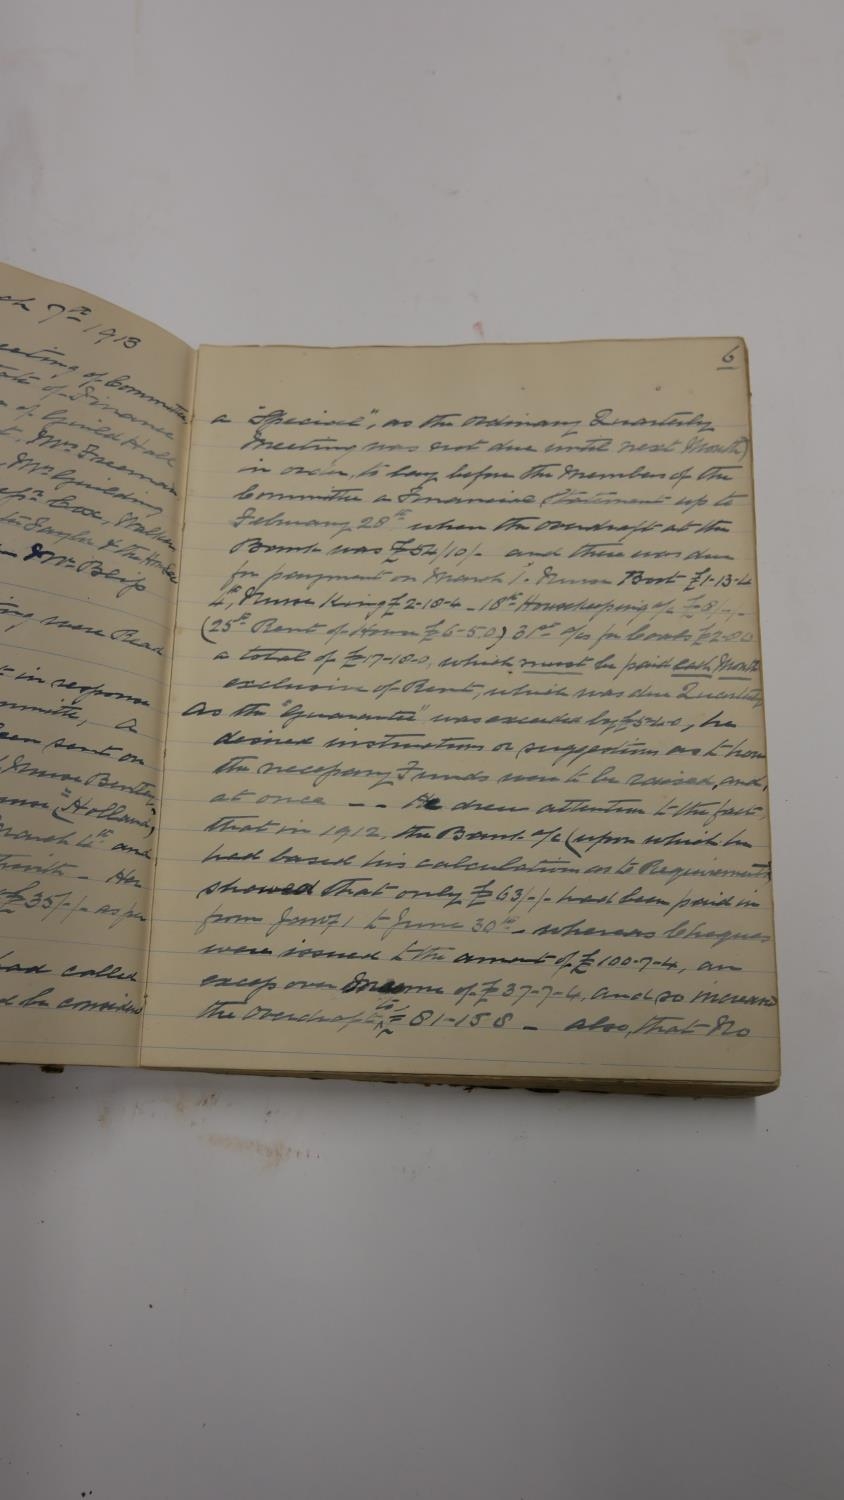 ch 7th 1913
eeting of Committee
of Finance
of Guild Hall
Mrs Freeman
Mr Guilding
Cox, Walker
Taylor & the Honble
& Mr Bliss
ing were Read
t in response
mmittee, a
een sent on
Nurse
(Holland)
March 4th and
month - Her
£35/-/- as per
had called
d be considered
6
a "Special", as the Ordinary Quarterly
Meeting was not due until next Month)
in order, to lay before the Members of the
Committee a Financial Statement up to
February 28th when the Overdraft at the
Bank was £54/10/- and there was due
for payment on March 1st Nurse Bott £1-13-4
4th, Nurse King £2-18-4 - 18th Housekeeping a/c £8/-/-
(25th Rent of House £6-5-0) 31st a/cs for Coals £2-
a total of £17-18-0, which must be paid each Month
exclusive of Rent, which was due Quarterly
As the "Guarantee" was exceeded by £54-0, he
desired instructions or suggestions as to how
the necessary Funds were to be raised, and,
at once - - He drew attention to the fact,
that in 1912, the Bank a/c (upon which he
had based his calculations as to Requirements)
showed that only £63/-/- had been paid in
from Jany 1 to June 30th - whereas Cheques
were issued to the amount of £100-7-4, an
excess over Income of £37-7-4, and so increased
the Overdraft to £81-15-8 - also, that No